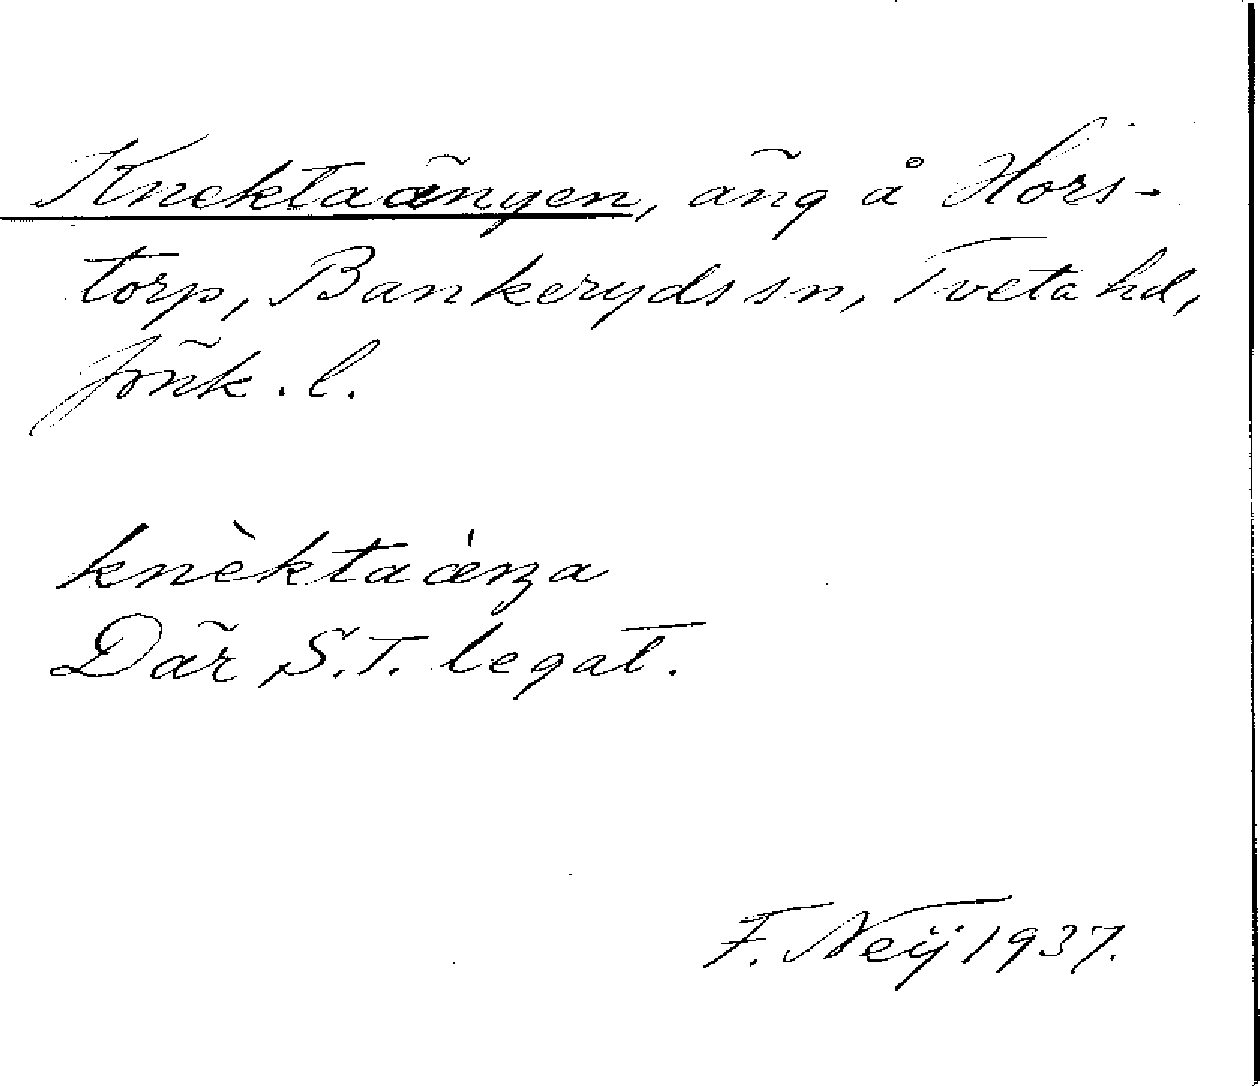 Knektaängen, äng å Hors-
torp, Bankeryds sn, Tveta hd,
Jönk. l.
knèktaǽŋa
Där S.T. legat.
F. Neij 1937.